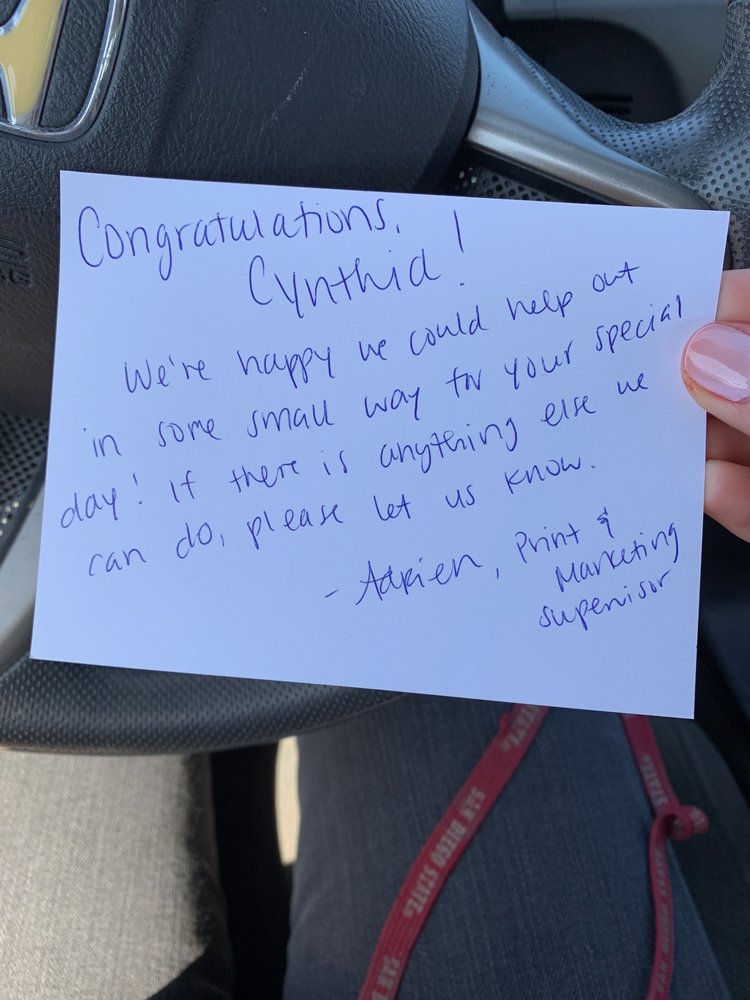 Congratulations,
Cynthia!
We're happy we could help out
in some small way for your special
day! If there is anything else we
can do, please let us know.
- Adrien, Print &
Marketing
supervisor
AG
STATE
SAN DIEGO STATE
SAN
STATE